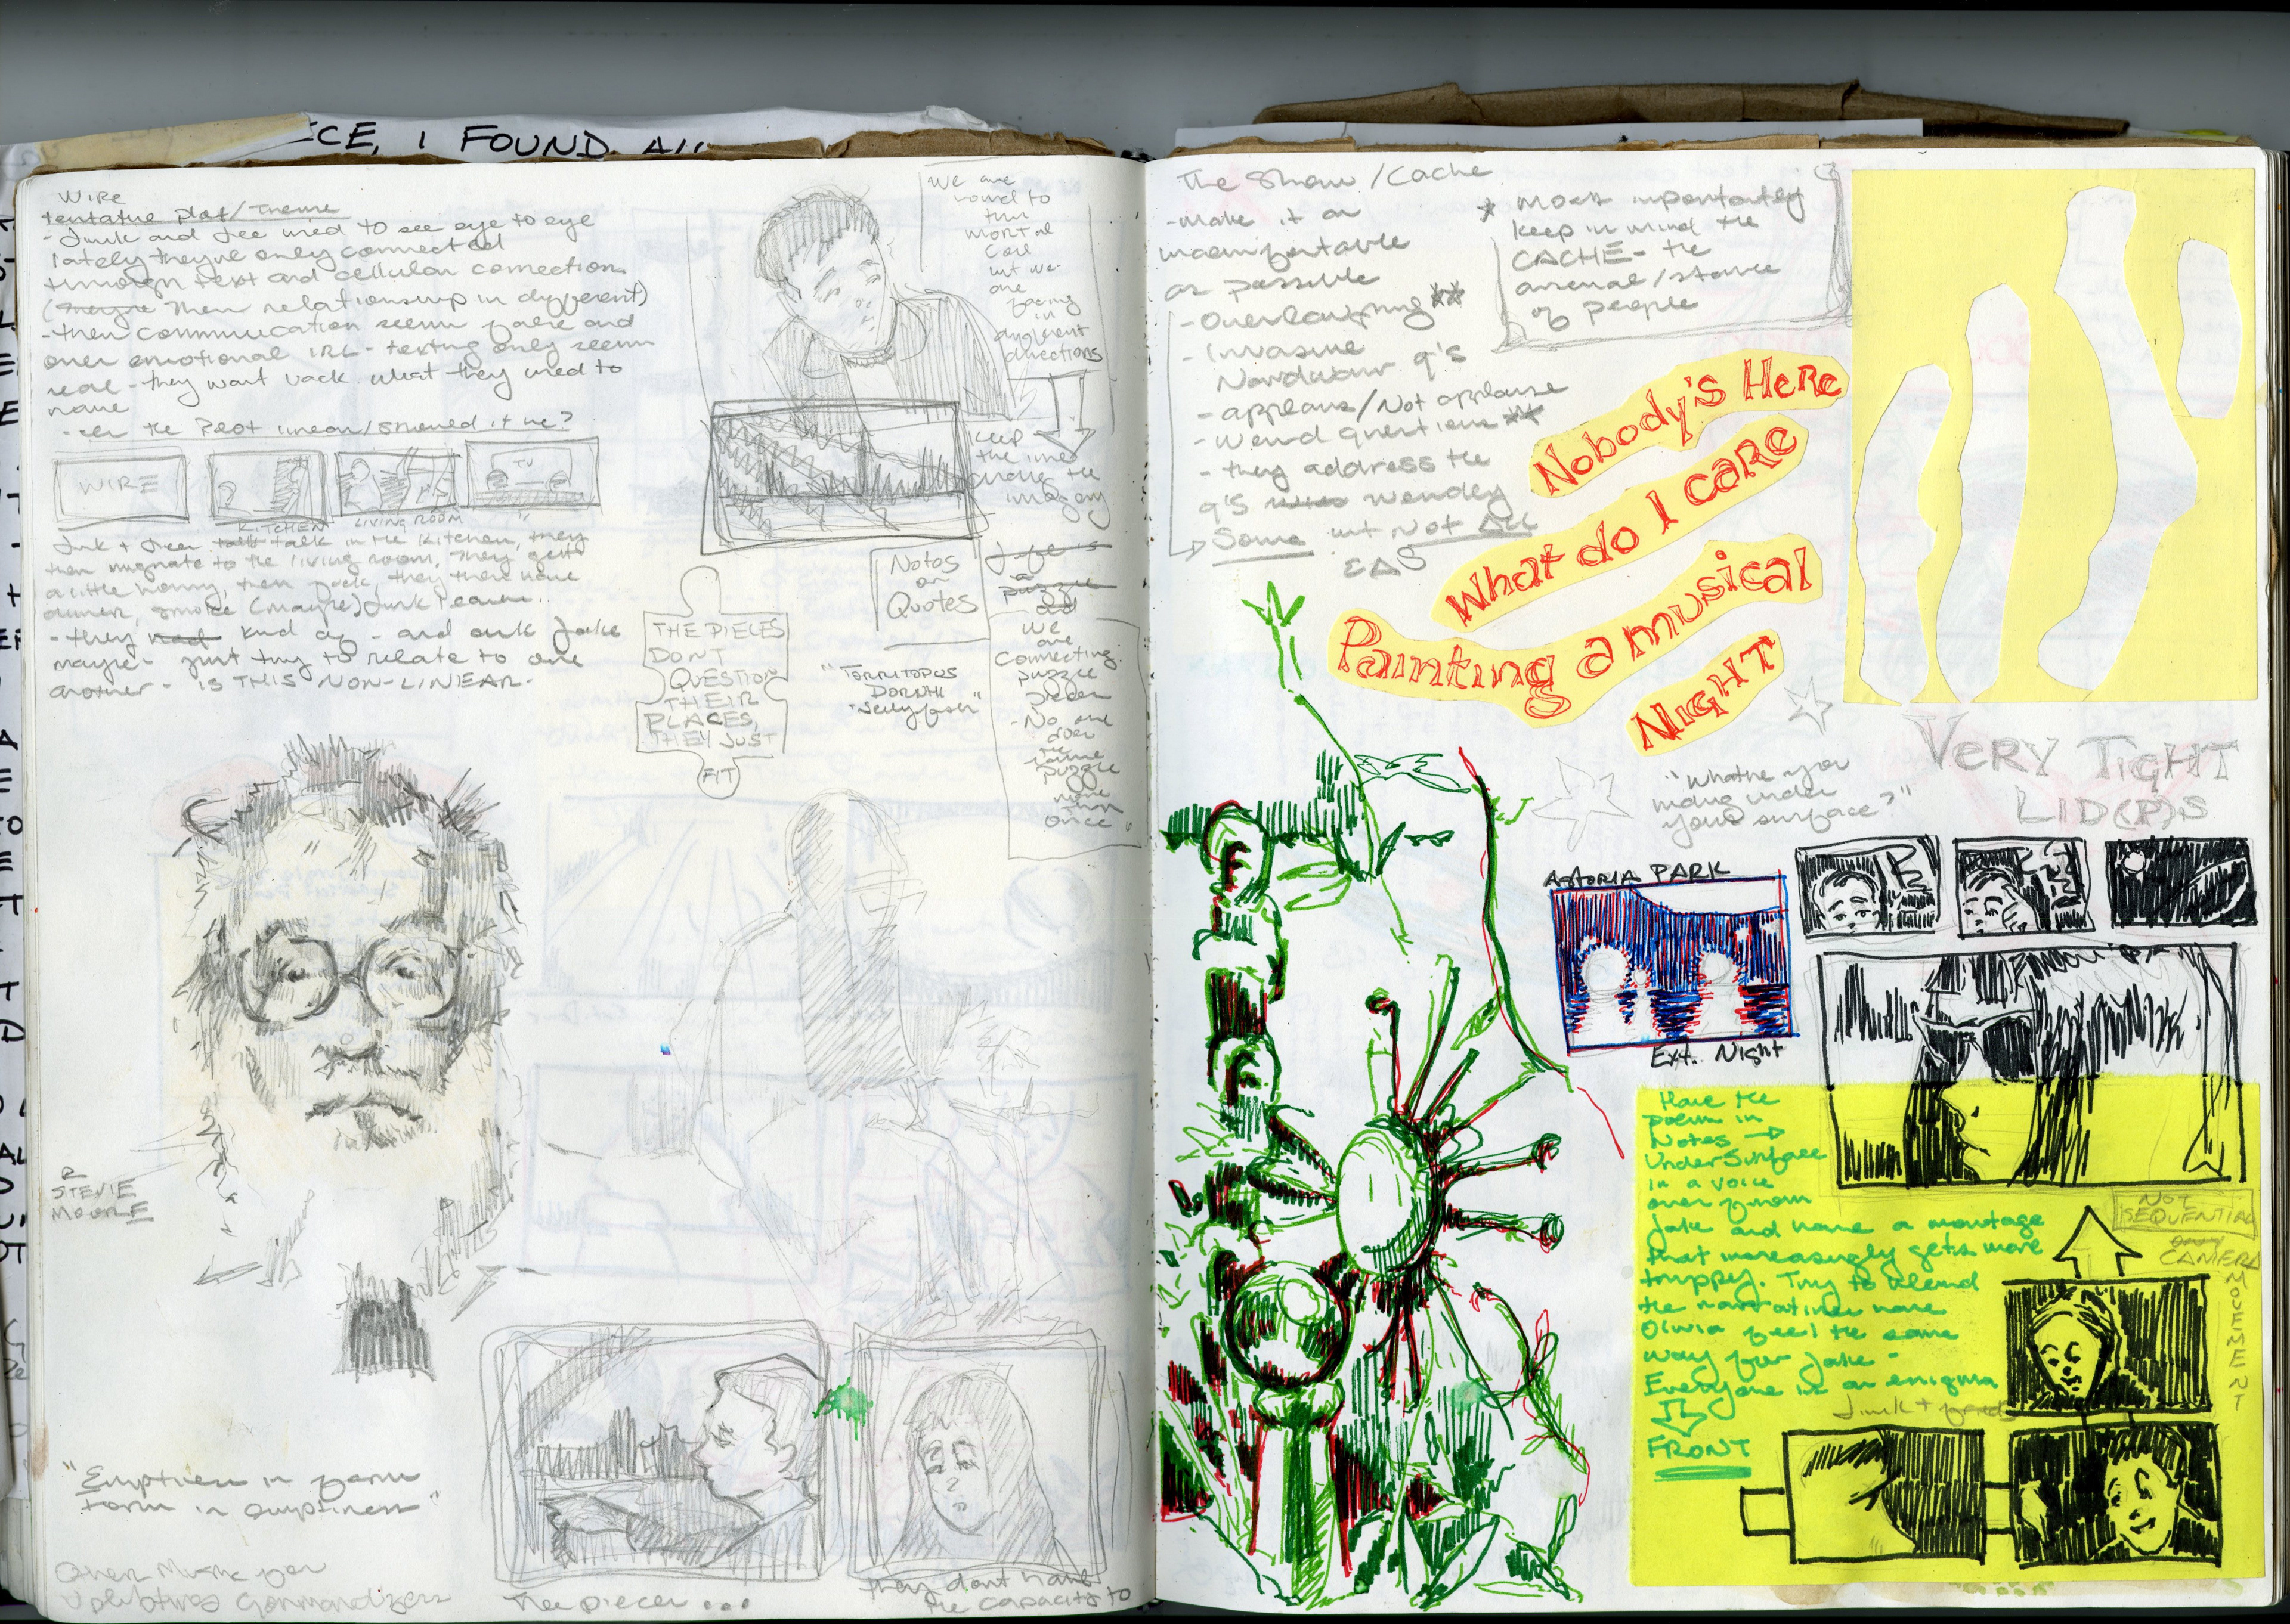 CE, I FOUND
WIRE
tentative plot/theme
- Junk and Jee used to see eye to eye
lately they're only connected
through text and cellular connection
Their relationship is different)
- their communication seems fake and
over emotional IRL - texting only seems
real - they want back what they used to
have
WIRE
TV
KITCHEN
LIVING ROOM
talk in the kitchen, they
then migrate to the living room, they get
a little horny, then they then have
dinner, smoke (maybe)
- they kind of - and
maybe - just try to relate to one
another - IS THIS NON-LINEAR -
We are
bound to
this
mortal
coil
but we
are
facing
in
different
directions
Keep
the lines
the
imagery
Notes
or
Quotes
THE PIECES
DON'T
QUESTION
THEIR
PLACES,
THEY JUST
FIT
Jellyfish"
We
are
connecting
puzzle
pieces
- No one
does
the
same
puzzle
more
than
once"
R
STEVIE
MOORE
"Emptiness is form
form is emptiness"
Other Music for
Uplifting Gormandizers
The pieces...
they don't have
the capacity to
The Show/Cache
- make it as
uncomfortable
as possible
- Overlapping **
- Invasive
Nardwuar q's
- applause/Not applause
- weird questions **
- they address the
q's
Some but Not ALL
* Most importantly
keep in mind the
CACHE - the
arsenal/storage
of people
Nobody's Here
What do I care
Painting a musical
NIGHT
"What're you
hiding under
your surface?"
VERY TIGHT
LID(P)S
ASTORIA PARK
Ext. Night
Have the
poem in
Notes →
Under Surface
in a voice
over from
Jake and have a montage
that increasingly gets more
trippy. Try to blend
the narratives have
Olivia feel the same
way for Jake -
Everyone is an enigma
FRONT
NOT
SEQUENTIAL
CAMERA
MOVEMENT